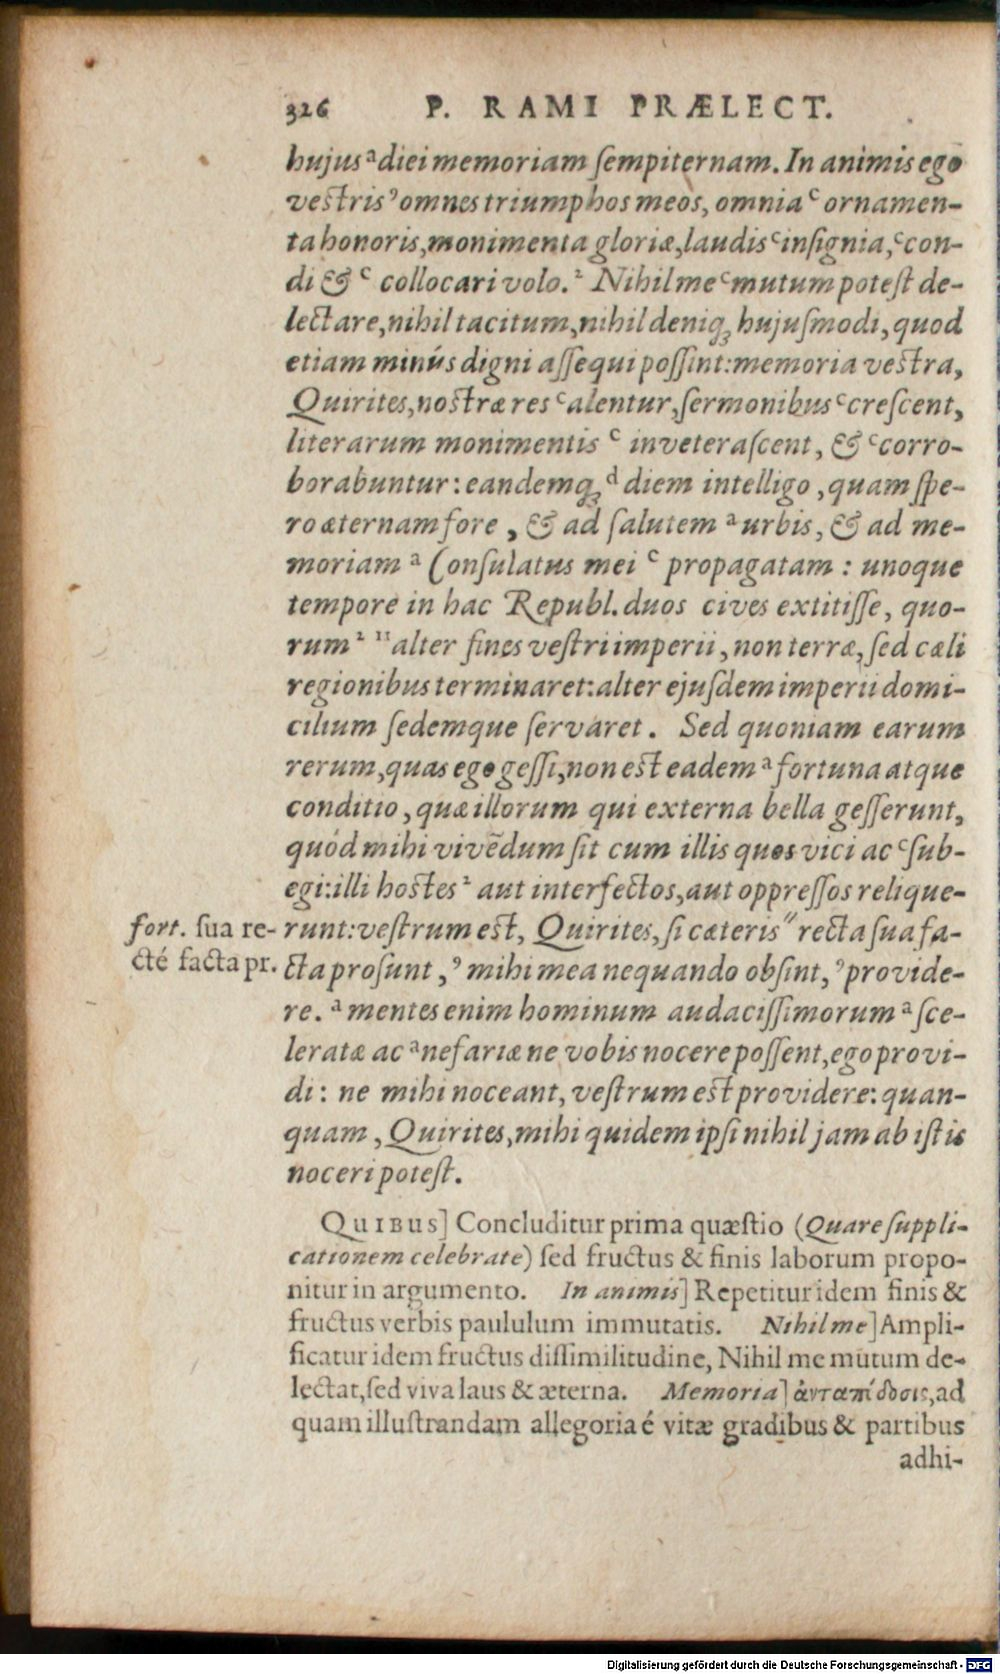 326 P. RAMI PRÆLECT.
hujus ᵃ diei memoriam ſempiternam. In animis ego
veſtris ’ omnes triumphos meos, omnia ᶜ ornamen-
ta honoris, monimenta gloriæ, laudis ᶜ inſignia, ᶜ con-
di & ᶜ collocari volo. ² Nihil me ᶜ mutum poteſt de-
lectare, nihil tacitum, nihil deniqꝫ hujuſmodi, quod
etiam minús digni aſſequi poſſint: memoria veſtra,
Quirites, noſtræ res ᶜ alentur, ſermonibus ᶜ creſcent,
literarum monimentis ᶜ inveteraſcent, & ᶜ corro-
borabuntur: eandemqꝫ ᵈ diem intelligo, quam ſpe-
ro æternam fore, & ad ſalutem ᵃ urbis, & ad me-
moriam ᵃ Conſulatus mei ᶜ propagatam : unoque
tempore in hac Republ. duos cives extitiſſe, quo-
rum ² ¹¹ alter fines veſtri imperii, non terræ, ſed cæli
regionibus terminaret: alter ejuſdem imperii domi-
cilium ſedemque ſervaret. Sed quoniam earum
rerum, quas ego geſſi, non eſt eadem ᵃ fortuna atque
conditio, quæ illorum qui externa bella geſſerunt,
quód mihi vivēdum ſit cum illis quos vici ac ᶜ ſub-
egi: illi hostes ² aut interfectos, aut oppreſſos relique-
fort. sua re- runt: veſtrum eſt, Quirites, ſi cæteris ″ recta ſua fa-
cté facta pr. cta proſunt, ’ mihi mea nequando obſint, ’ provide-
re. ᵃ mentes enim hominum audaciſſimorum ᵃ ſce-
leratæ ac ᵃ nefariæ ne vobis nocere poſſent, ego provi-
di: ne mihi noceant, veſtrum eſt providere: quan-
quam, Quirites, mihi quidem ipſi nihil jam ab iſtis
noceri poteſt.
QUIBUS] Concluditur prima quæſtio (Quare ſuppli-
cationem celebrate) ſed fructus & finis laborum propo-
nitur in argumento. In animis] Repetitur idem finis &
fructus verbis paululum immutatis. Nihil me] Ampli-
ficatur idem fructus diſſimilitudine, Nihil me mutum de-
lectat, ſed viva laus & æterna. Memoria] ἀνταπόδοσις, ad
quam illuſtrandam allegoria é vitæ gradibus & partibus
adhi-
Digitalisierung gefördert durch die Deutsche Forschungsgemeinschaft - DFG